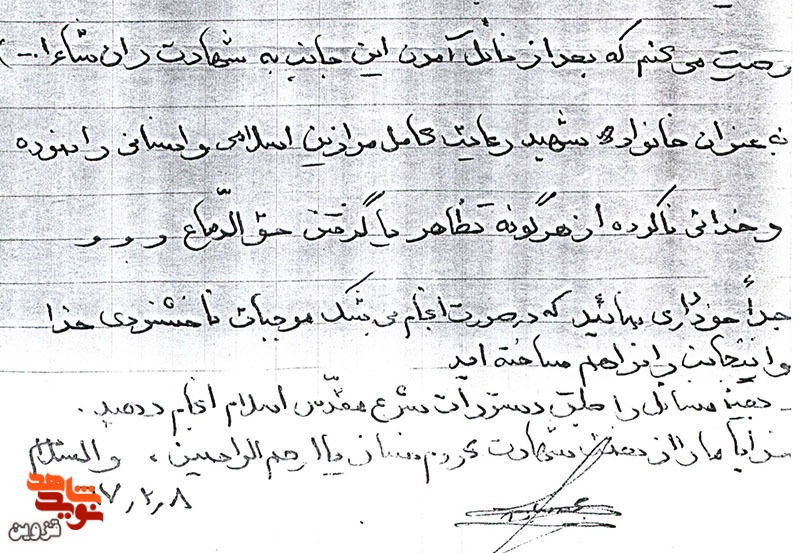 وصیت می‌کنم که بعد از نائل آمدن این جانب به شهادت (ان شاءا...)
به عنوان خانواده شهید رعایت کامل موازین اسلامی و انسانی را نموده
و خدائی ناکرده از هرگونه تظاهر یا گرفتن حق الدّماع و و و
جداً خودداری نمائید که در صورت انجام بی شک موجبات ناخشنودی خدا
و اینجانب را فراهم ساخته اید
- بقیه مسائل را طبق دستورات شرع مقدّس اسلام انجام دهید.
خدایا ما را از نعمت شهادت محروم مساز یا ارحم الراحمین، والسّلام
۷/۲/۸
نوید شاهد
قزوین